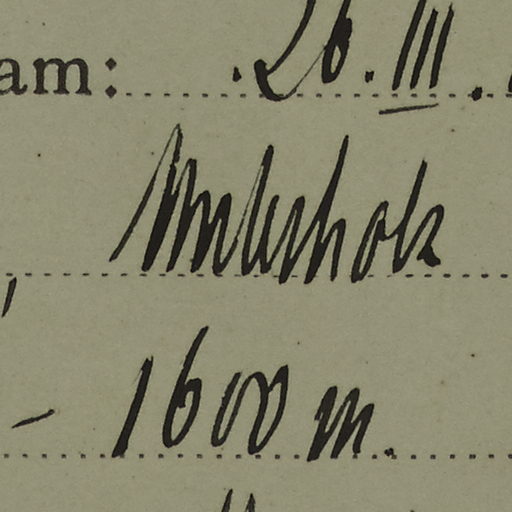 am: 26. III.
Unterholz
– 1600 m.